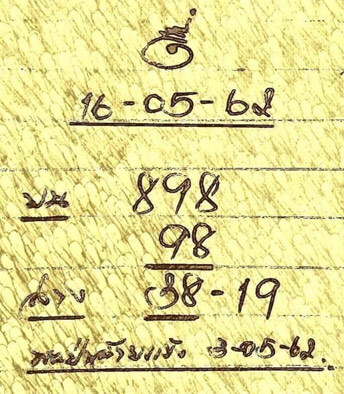 16-05-62
บน 898
98
ล่าง 38-19
3-05-62.